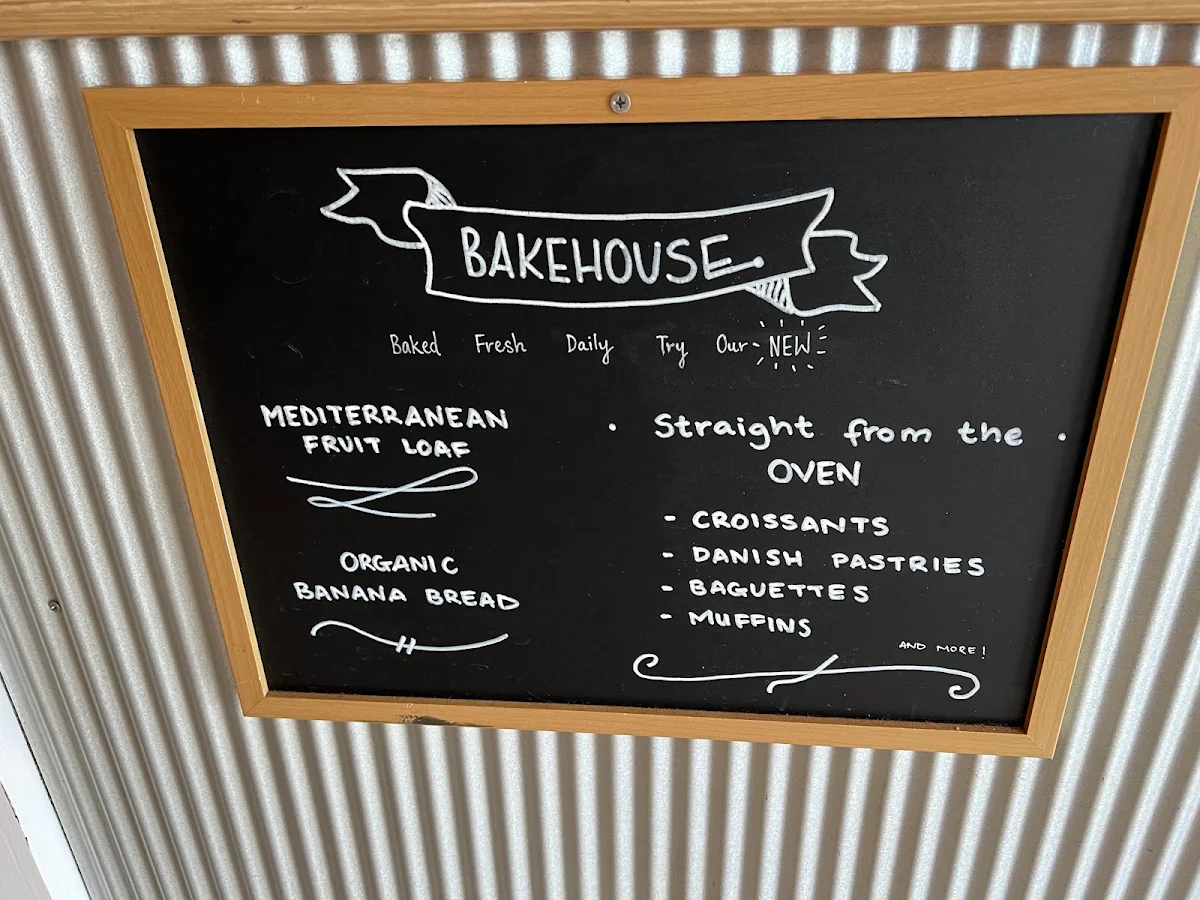 BAKEHOUSE
Baked Fresh Daily Try Our NEW
MEDITERRANEAN
FRUIT LOAF
ORGANIC
BANANA BREAD
• Straight from the •
OVEN
- CROISSANTS
- DANISH PASTRIES
- BAGUETTES
- MUFFINS
AND MORE!